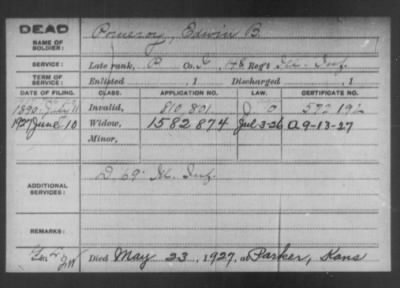 DEAD
NAME OF SOLDIER: Pomeroy, Edwin B.
SERVICE: Late rank, P Co. Reg't Ill. Inf.
TERM OF SERVICE: Enlisted , 1 Discharged , 1
DATE OF FILING. CLASS. APPLICATION NO. LAW. CERTIFICATE NO.
1890 July 11 Invalid, 810,801 572192
1927 June 10 Widow, 1582874 Jul-3-26 A 9-13-27
Minor,
ADDITIONAL SERVICES: D. 69" Ill. Inf.
REMARKS:
Died May 23, 1927, at Parker, Kans